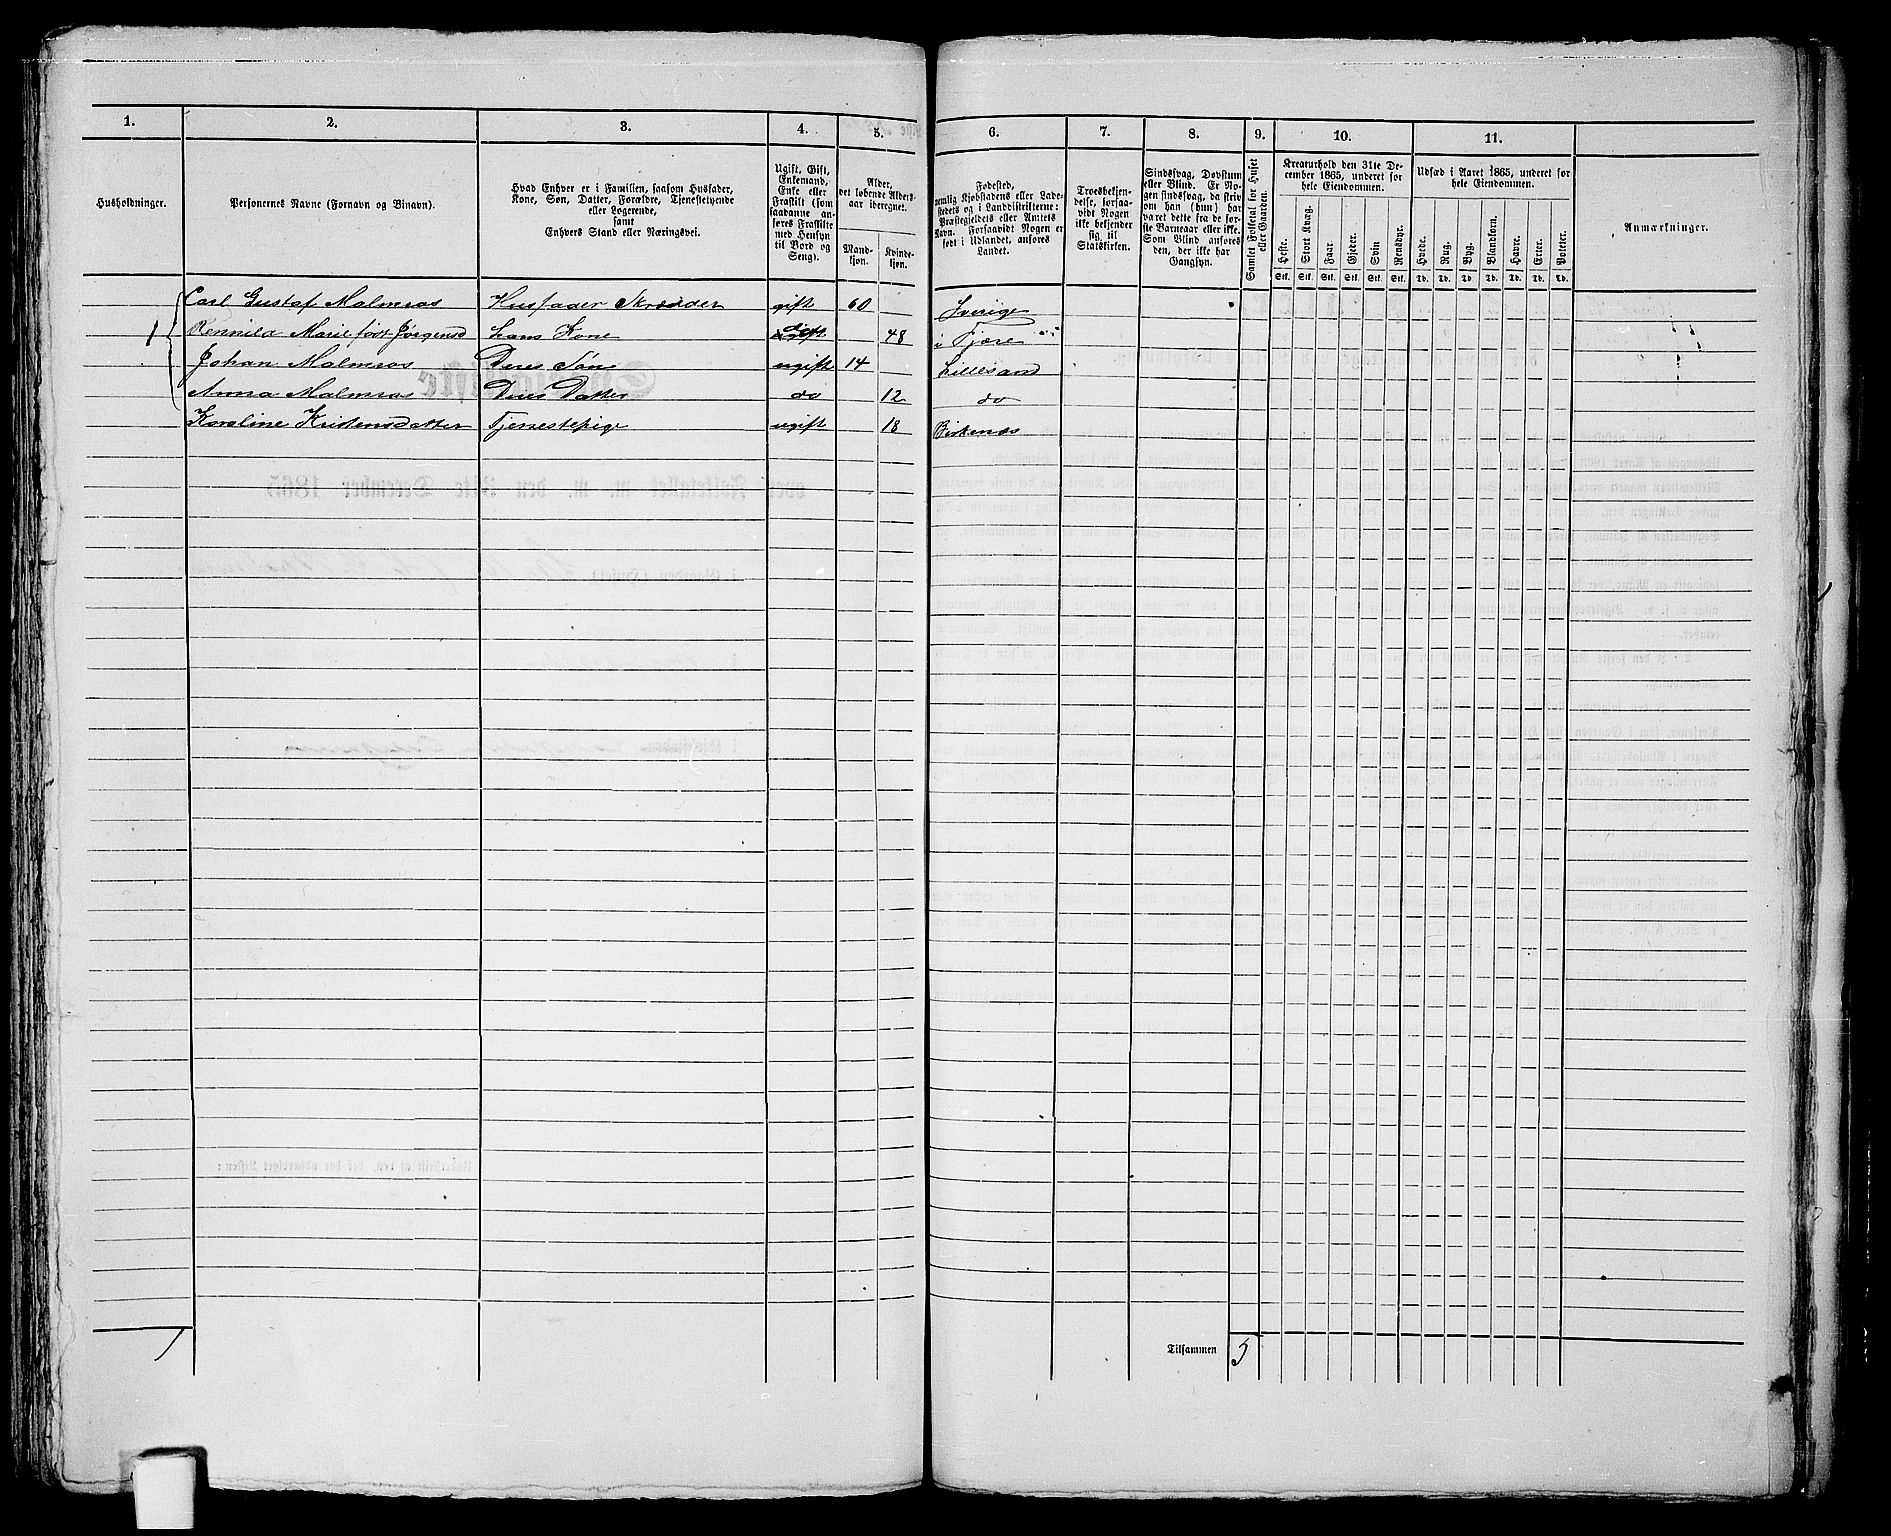 1. 2. 3. 4. 5. 6. 7. 8. 9. 10. 11.
Husholdninger.
Personernes Navne (Fornavn og Binavn).
Hvad Enhver er i Familien, saasom Husfader,
Kone, Søn, Datter, Forældre, Tjenestetyende
eller Logerende,
samt
Enhvers Stand eller Næringsvei.
Ugift, Gift,
Enkemand,
Enke eller
Fraskilt (som
saadanne an-
føres Fraskilte
med Hensyn
til Bord og
Seng).
Alder,
det løbende Alders-
aar iberegnet.
Mand-
kjøn.
Kvinde-
kjøn.
Fødested,
nemlig Kjøbstadens eller Lade-
stedets og i Landdistrikterne:
Præstegjeldets eller Amtets
Navn. Forsaavidt Nogen er
født i Udlandet, anføres
Landet.
Troesbekjen-
delse, forsaa-
vidt Nogen
ikke bekjender
sig til
Statskirken.
Sindssvag, Døvstum
eller Blind. Er No-
gen sindssvag, da skriv
om han (hun) har
været dette fra de før-
ste Barneaar eller ikke.
Som Blind anføres
den, der ikke har
Gangsyn.
Samlet Folketal for Huset
eller Gaarden.
Kreaturhold den 31te De-
cember 1865, underet for
hele Eiendommen.
Heste. Stort Kvæg. Faar. Gjeder. Svin Rensdyr.
Stk. Stk. Stk. Stk. Stk. Stk.
Udsæd i Aaret 1865, underet for
hele Eiendommen.
Hvede. Rug. Byg. Blandkorn. Havre. Erter. Poteter.
Td. Td. Td. Td. Td. Td. Td.
Anmærkninger.
Carl Gustaf Malmros Husfader Skrædder gift 60 Sverige
1 Marie født Jørgensd hans Kone gift 48 i Fjære
Johan Malmros Deres Søn ugift 14 Lillesand
Anna Malmros Deres Datter do 12 do
Karoline Kristensdatter Tjenestepige ugift 18 Birkenæs
1 Tilsammen 5